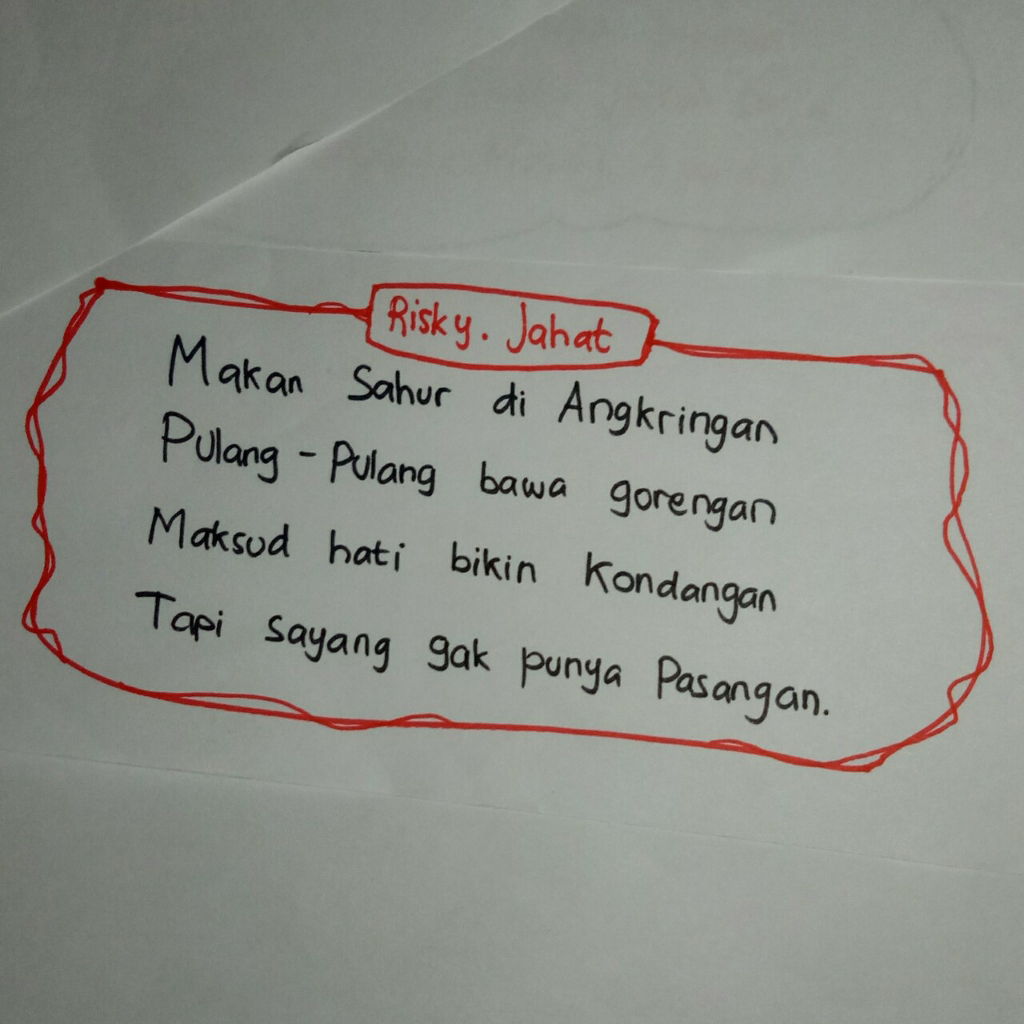 Risky. Jahat
Makan Sahur di Angkringan
Pulang - Pulang bawa gorengan
Maksud hati bikin Kondangan
Tapi sayang gak punya Pasangan.